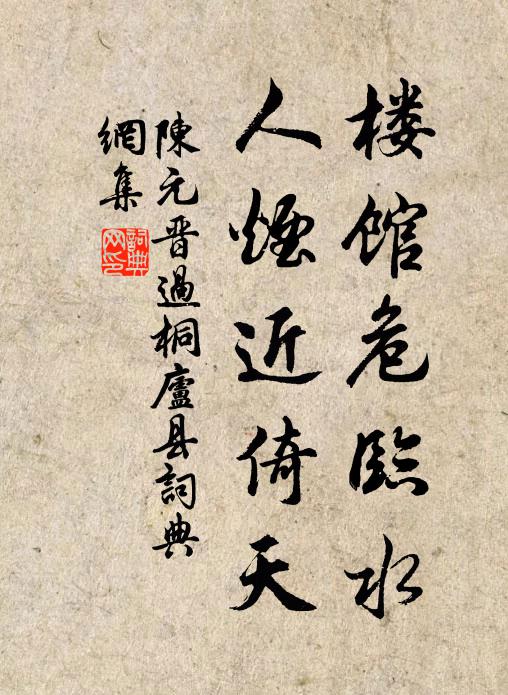 楼馆危臨水
人煙近倚天
陳元晋過桐廬县詞典
網集
詞典网印